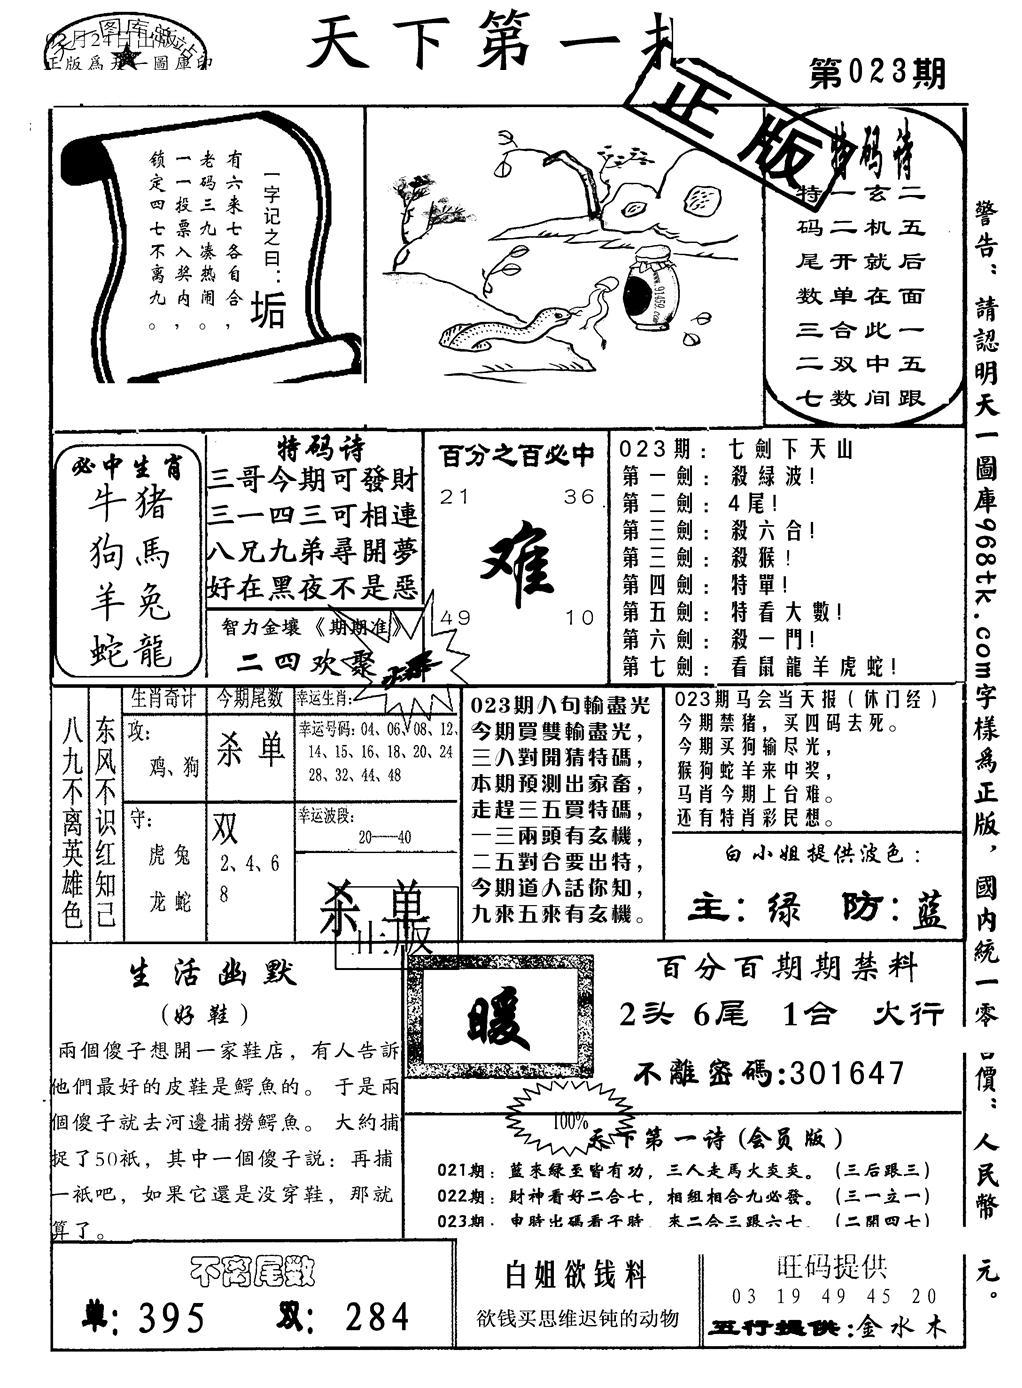 天下第一
第023期
正版
一字记之曰：垢
有六来七各自合，
老码三九凑热闹。
一一投票入奖内，
锁定四七不离九。
www.91459.com
特码诗
二五后面一五跟
玄机就在此中间
一二开单合双数
特码尾数三二七
警告：請認明天一圖庫968tk.com字樣爲正版，國内統一零售價：人民幣 元。
必中生肖
牛猪
狗馬
羊兔
蛇龍
特码诗
三哥今期可發財
三一四三可相連
八兄九弟尋開夢
好在黑夜不是惡
智力金壤《期期准》
二四欢聚
百分之百必中
21 36
难
49 10
023期：七劍下天山
第一劍：殺緑波!
第二劍：4尾!
第三劍：殺六合!
第三劍：殺猴!
第四劍：特單!
第五劍：特看大數!
第六劍：殺一門!
第七劍：看鼠龍羊虎蛇!
八九不离英雄色
东风不识红知己
生肖奇计
攻：
鸡、狗
守：
虎 兔
龙 蛇
今期尾数
杀单
双
2、4、6
8
幸运生肖:
幸运号码: 04、06、08、12、
14、15、16、18、20、24
28、32、44、48
幸运波段:
20——40
杀单
正版
023期八句輸盡光
今期買雙輸盡光，
三八對開猜特碼，
本期預測出家畜，
走趕三五買特碼，
一三兩頭有玄機，
二五對合要出特，
今期道人話你知，
九來五來有玄機。
023期马会当天报（休门经）
今期禁猪，买四码去死。
今期买狗输尽光，
猴狗蛇羊来中奖，
马肖今期上台难。
还有特肖彩民想。
白小姐提供波色：
主：绿 防：蓝
生活幽默
(好鞋)
兩個傻子想開一家鞋店，有人告訴
他們最好的皮鞋是鰐魚的。于是兩
個傻子就去河邊捕撈鰐魚。大約捕
捉了50衹，其中一個傻子説：再捕
一衹吧，如果它還是没穿鞋，那就
算了。
暖
百分百期期禁料
2头 6尾 1合 火行
不離密碼:301647
100%
天下第一诗(会员版)
021期：藍來緑至皆有功，三人走馬火炎炎。（三后跟三）
022期：財神看好二合七，相組相合九必發。（三一立一）
023期：申時出碼看子時，來二合三跟六七。（二開四七）
不离尾数
单：395 双：284
白姐欲钱料
欲钱买思维迟钝的动物
旺码提供
03 19 49 45 20
五行提供:金水木